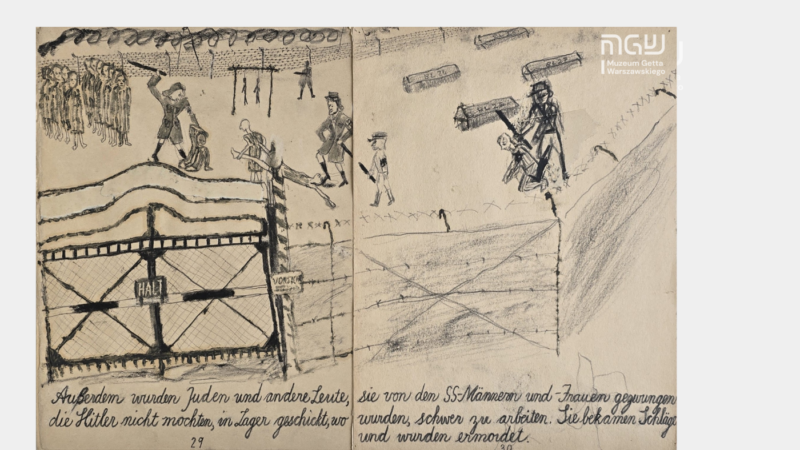 MGW
Muzeum Getta
Warszawskiego
HALT
Außerdem wurden Juden und andere Leute,
die Hitler nicht möchten, in Lager geschickt, wo
29
sie von den SS-Männern und -Frauen gezwungen
wurden, schwer zu arbeiten. Sie bekamen Schläge
und wurden ermordet.
30